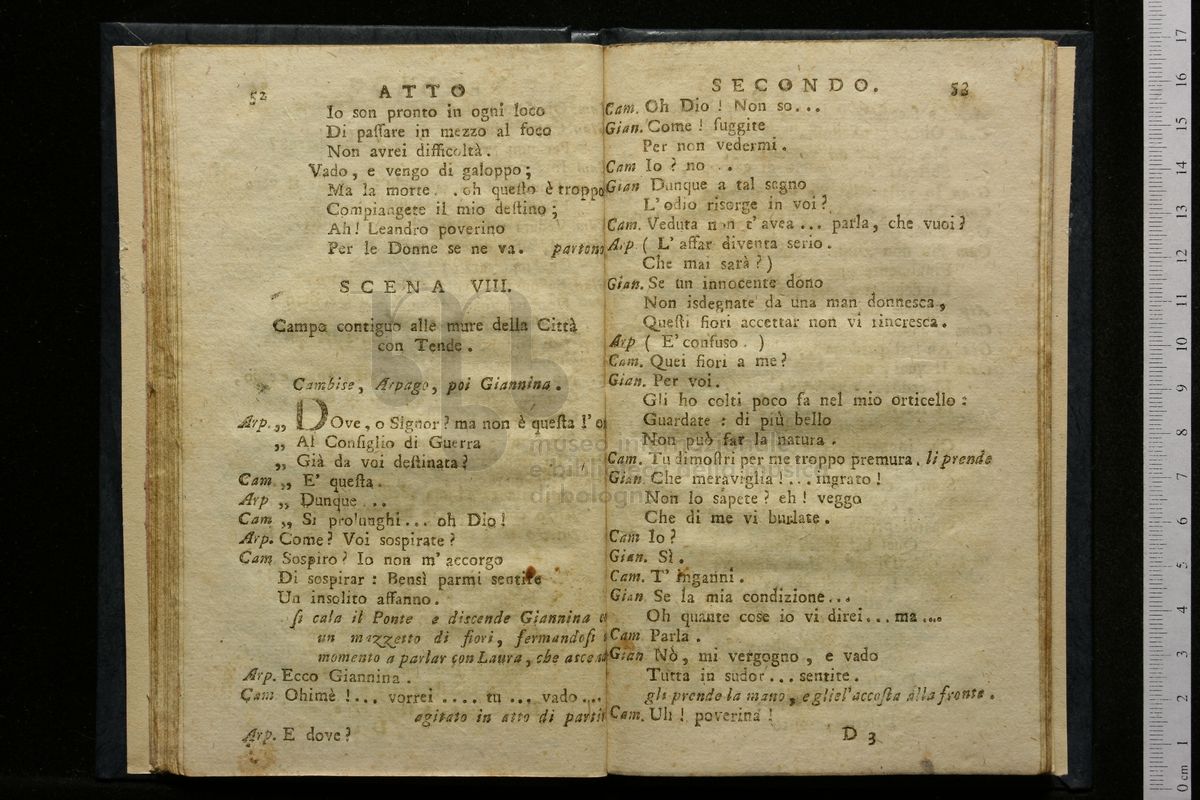 52
ATTO
Io son pronto in ogni loco
Di paſſare in mezzo al foco
Non avrei difficoltà.
Vado, e vengo di galoppo;
Ma la morte . . oh queſto è troppo
Compiangete il mio deſtino;
Ah! Leandro poverino
Per le Donne se ne va. partono
SCENA VIII.
Campo contiguo alle mure della Città
con Tende.
Cambise, Arpago, poi Giannina.
Arp. „ DOve, o Signor? ma non è queſta l'
„ Al Conſiglio di Guerra
„ Già da voi deſtinata?
Cam „ E' queſta.
Arp „ Dunque ...
Cam „ Si prolunghi... oh Dio!
Arp. Come? Voi sospirate?
Cam Sospiro? Io non m' accorgo
Di sospirar: Bensì parmi sentire
Un insolito affanno.
ſi cala il Ponte e discende Giannina
un mazzetto di fiori, fermandoſi
momento a parlar con Laura, che
Arp. Ecco Giannina.
Cam Ohimè !... vorrei .... tu ... vado ....
agitato in atto di
Arp. E dove?
SECONDO. 53
Cam. Oh Dio! Non so...
Gian. Come! fuggite
Per non vedermi.
Cam Io? no ..
Gian Dunque a tal segno
L'odio risorge in voi?
Cam. Veduta non t'avea ... parla, che vuoi?
Arp ( L' affar diventa serio.
Che mai sarà?)
Gian. Se un innocente dono
Non isdegnate da una man donnesca,
Queſti fiori accettar non vi rincresca.
Arp ( E' confuso. )
Cam. Quei fiori a me?
Gian. Per voi.
Gli ho colti poco fa nel mio orticello:
Guardate: di più bello
Non può far la natura.
Cam. Tu dimoſtri per me troppo premura. li prende
Gian Che meraviglia!... ingrato!
Non lo sapete? eh! veggo
Che di me vi burlate.
Cam Io?
Gian. Sì.
Cam. T' inganni.
Gian Se la mia condizione...
Oh quante cose io vi direi... ma ....
Cam Parla.
Gian Nò, mi vergogno, e vado
Tutta in sudor... sentite.
gli prende la mano, e gliel'accoſta alla fronte.
Cam. Uh! poverina!
D 3
museo internazionale
e biblioteca della musica
di bologna
0 cm 1 2 3 4 5 6 7 8 9 10 11 12 13 14 15 16 17